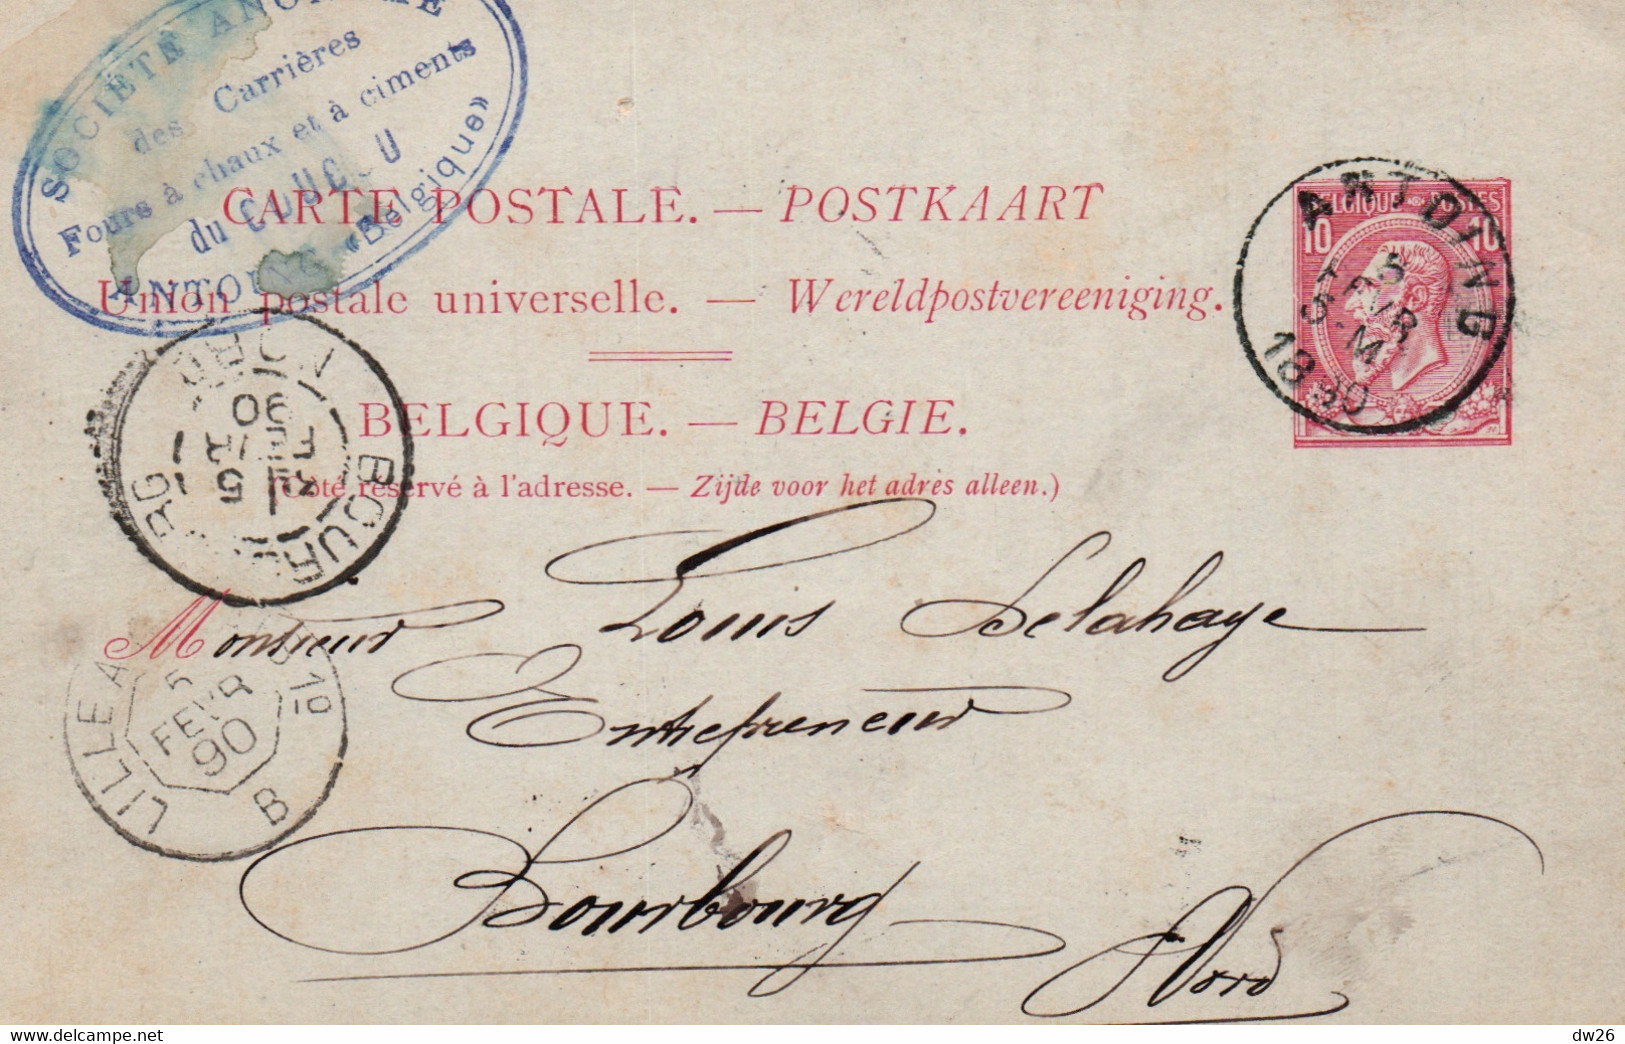 SOCIÉTÉ ANONYME
des Carrières
Fours à chaux et à ciments
du COUCOU
ANTOING «Belgique»
CARTE POSTALE. — POSTKAART
Union postale universelle. — Wereldpostvereeniging.
BELGIQUE. — BELGIE.
(Côté réservé à l'adresse. — Zijde voor het adres alleen.)
BELGIQUE POSTES
10 10
5
FEVR
1890
BOURBOURG
NORD
5
FEVR
90
LILLE A
5
FEVR
90
B
Monsieur Louis Delahaye
Entrepreneur
Bourbourg
Nord
delcampe.net
dw26